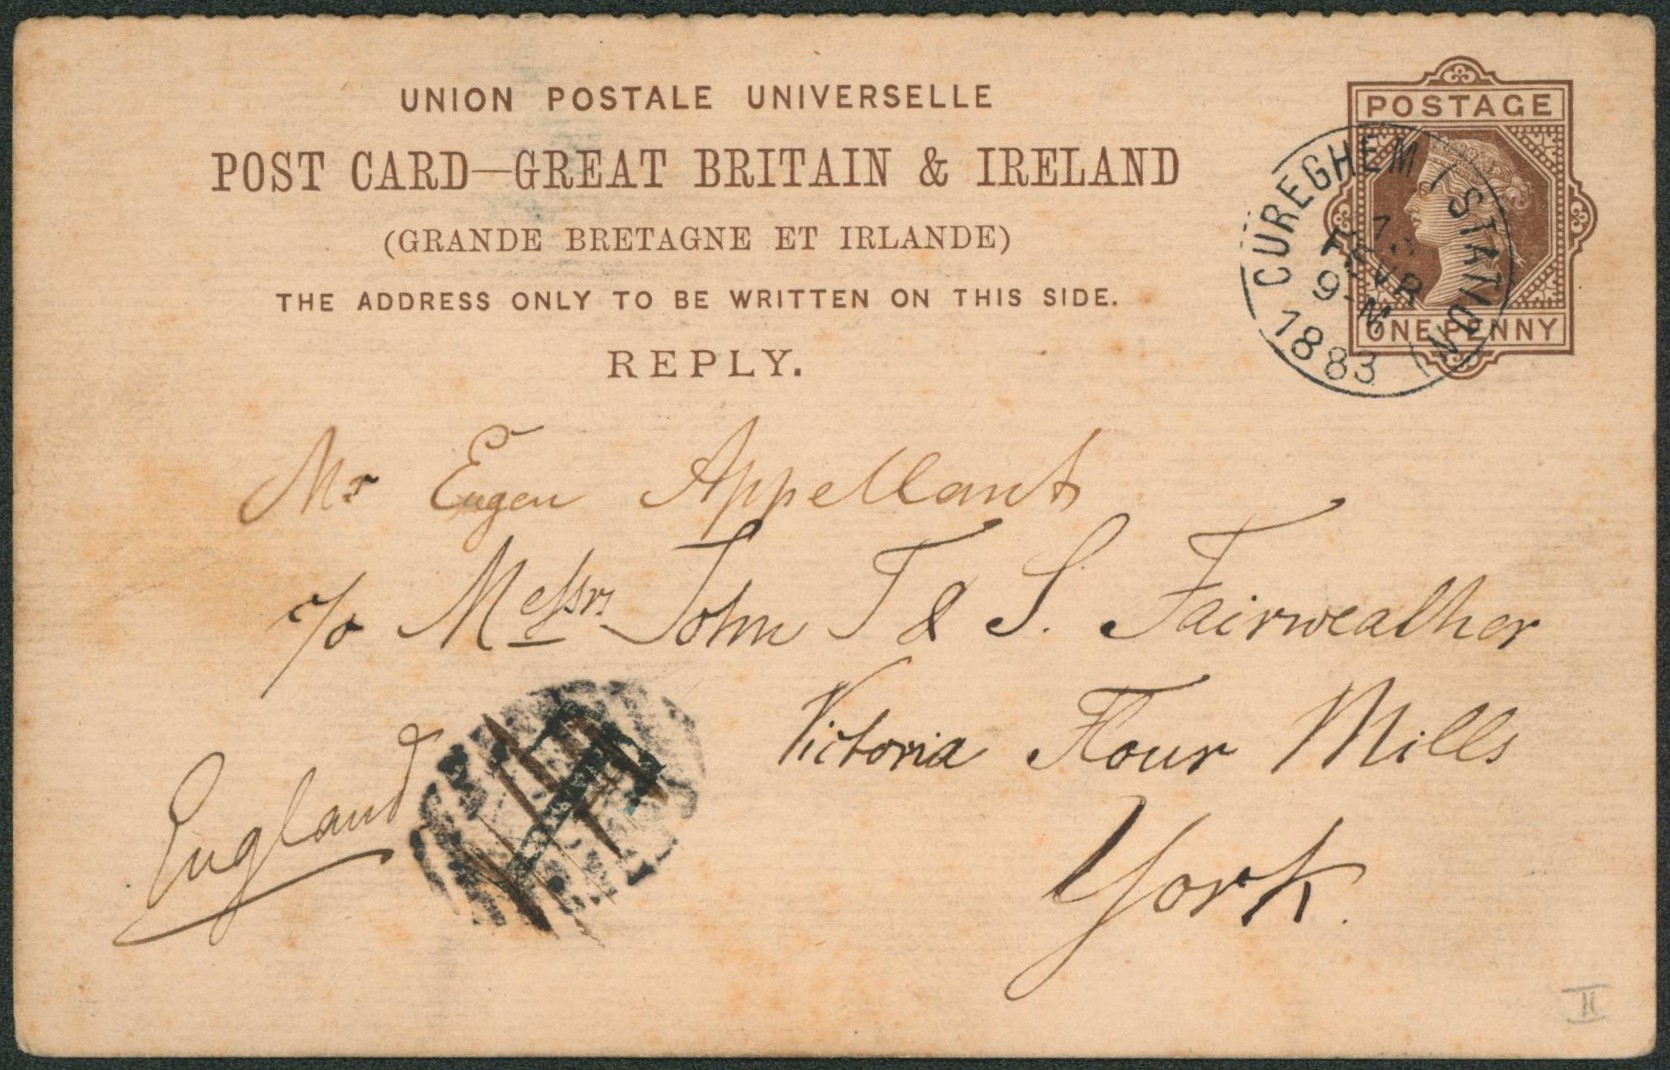 UNION POSTALE UNIVERSELLE
POST CARD—GREAT BRITAIN & IRELAND
(GRANDE BRETAGNE ET IRLANDE)
THE ADDRESS ONLY TO BE WRITTEN ON THIS SIDE.
REPLY.
POSTAGE
ONE PENNY
CUREGHEM (STATION)
FEVR
9-M
1883
Mr Eugen Appellant
c/o Messrs John T & S. Fairweather
Victoria Flour Mills
York.
England
T
II